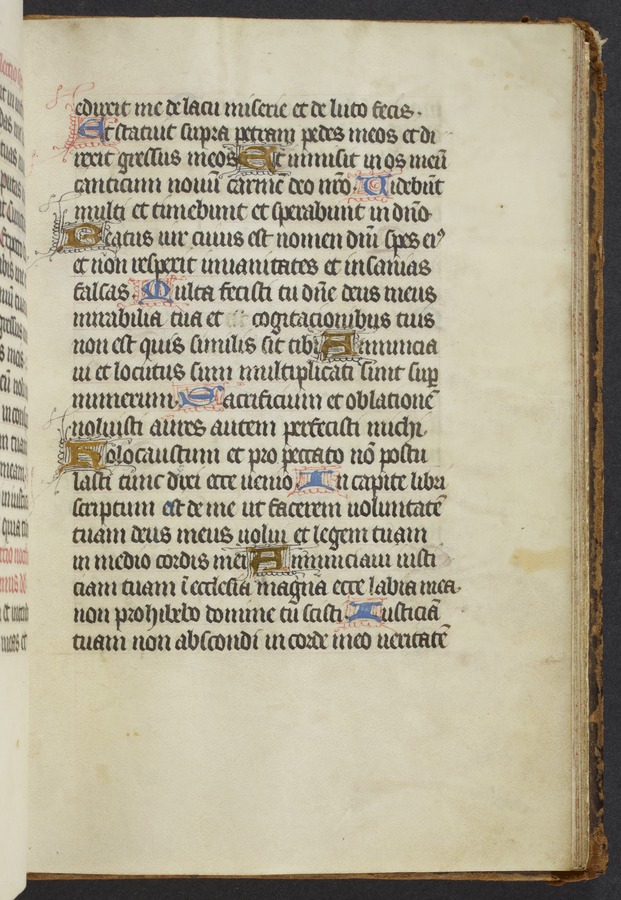 eduxit me de lacu miserie et de luto fecis.
Et statuit supra petram pedes meos et di
rexit gressus meos Et inmisit in os meū
canticum nouū carmē deo nr̄o. Uidebūt
multi et timebunt et sperabunt in dn̄o
Beatus uir cuius est nomen dn̄i spes eiꝰ
et non respexit inuanitates et insanias
falsas Multa fecisti tu dn̄e deus meus
mirabilia tua et cogitacionibus tuis
non est quis similis sit tibi Annuncia
ui et locutus sum multiplicati sunt sup
numerum Sacrificium et oblationē
noluisti aures autem perfecisti michi.
Holocaustum et pro peccato nō postu
lasti tunc dixi ecce uenio In capite libri
scriptum est de me ut facerem uoluntatē
tuam deus meus uolui et legem tuam
in medio cordis mei Annunciaui iusti
ciam tuam ī ecclesia magna ecce labia mea
non prohibebo domine tu scisti Iusticiā
tuam non abscondi in corde meo ueritatē